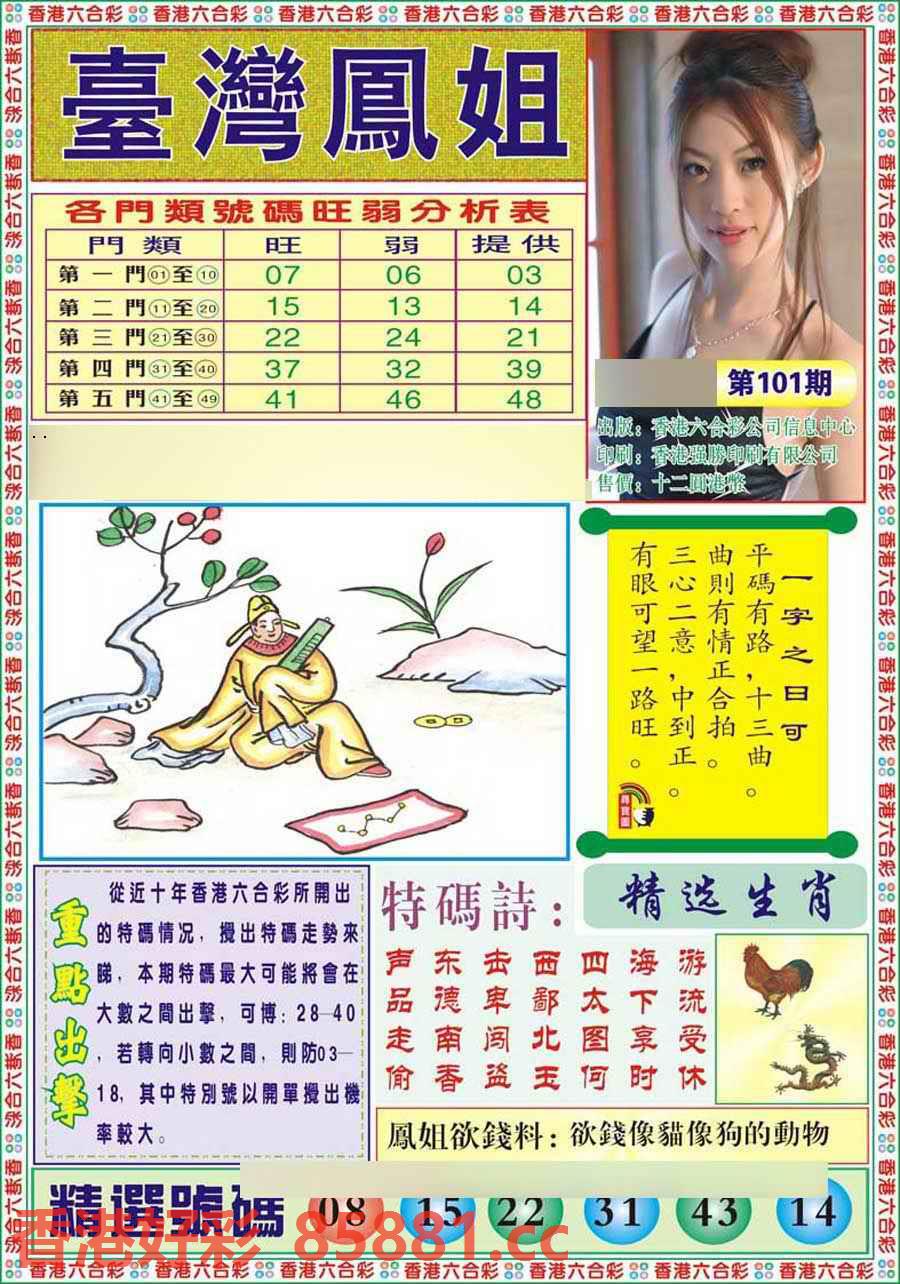 香港六合彩
臺灣鳳姐
各門類號碼旺弱分析表
門類 旺 弱 提供
第一門01至10 07 06 03
第二門11至20 15 13 14
第三門21至30 22 24 21
第四門31至40 37 32 39
第五門41至49 41 46 48
第101期
出版：香港六合彩公司信息中心
印刷：香港强勝印刷有限公司
售價：十二圓港幣
一字之曰可
平碼有路，十三曲。
曲則有情正合拍。
三心二意，中到正。
有眼可望一路旺。
尋寶圖
重點出擊
從近十年香港六合彩所開出
的特碼情况，攪出特碼走勢來
睇，本期特碼最大可能將會在
大數之間出擊，可博：28—40
，若轉向小數之間，則防03—
18，其中特別號以開單攪出機
率較大。
特碼詩：
声东击西四海游
品德卑鄙太下流
走南闯北图享受
偷香盗玉何时休
精选生肖
鳳姐欲錢料：欲錢像貓像狗的動物
精選號碼 08 15 22 31 43 14
香港好彩 85881.cc